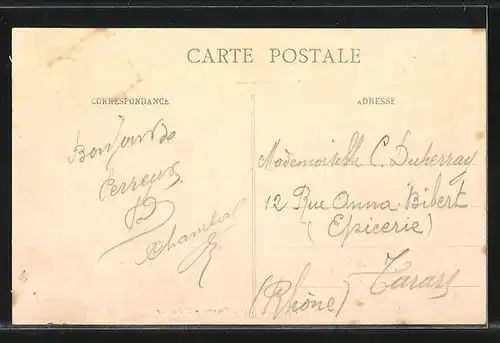 CARTE POSTALE
CORRESPONDANCE
ADRESSE
Bonjour de
Perreux
Mademoiselle C. Duperray
12 Rue Anna Bibert
(Epicerie)
Tarare
(Rhône)